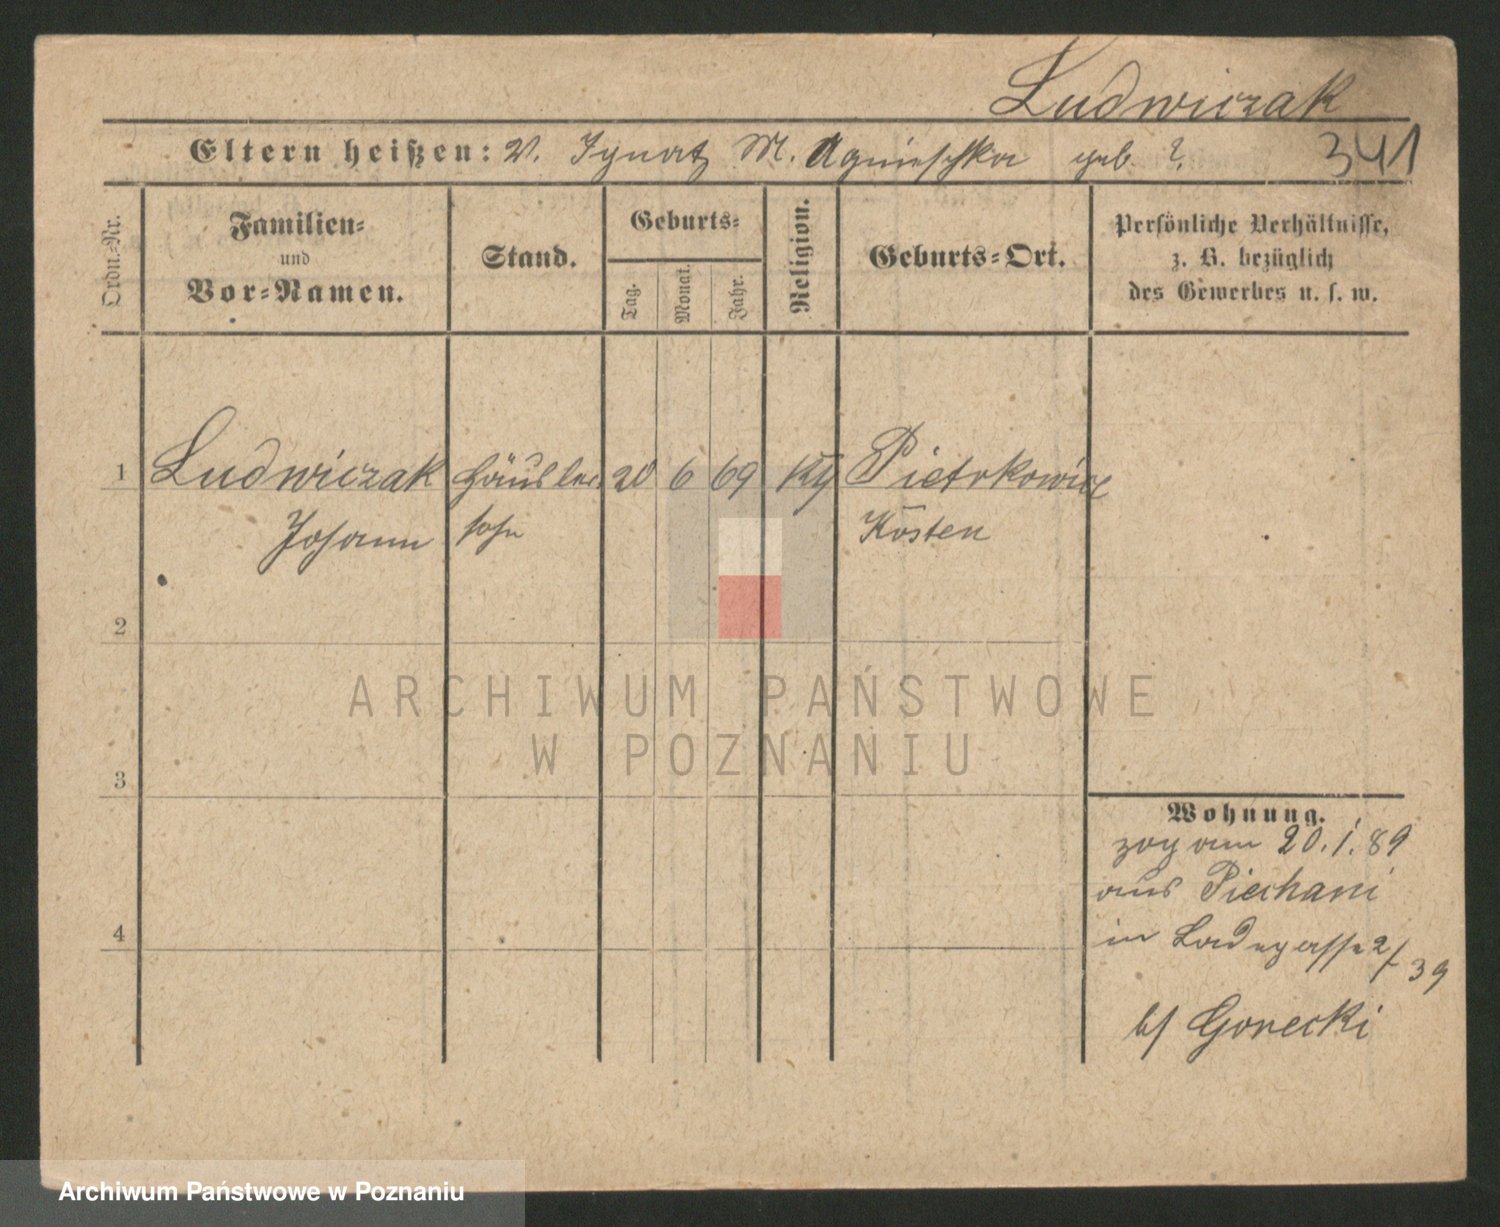 Ludwiczak
Eltern heißen: V. Ignatz M. Agnieschka geb. ?
341
Ordn.-Nr.
Familien-
und
Vor-Namen.
Stand.
Geburts-
Tag.
Monat.
Jahr.
Religion.
Geburts-Ort.
Persönliche Verhältnisse,
z. B. bezüglich
des Gewerbes u. s. w.
1 Ludwiczak Häusler 20 6 69 Pietrkowice
Johann sohn Kosten
2
ARCHIWUM PAŃSTWOWE
W POZNANIU
3
Wohnung.
zog am 20.1.89
aus Piechani
in 2/39
4
b/ Gorecki
Archiwum Państwowe w Poznaniu